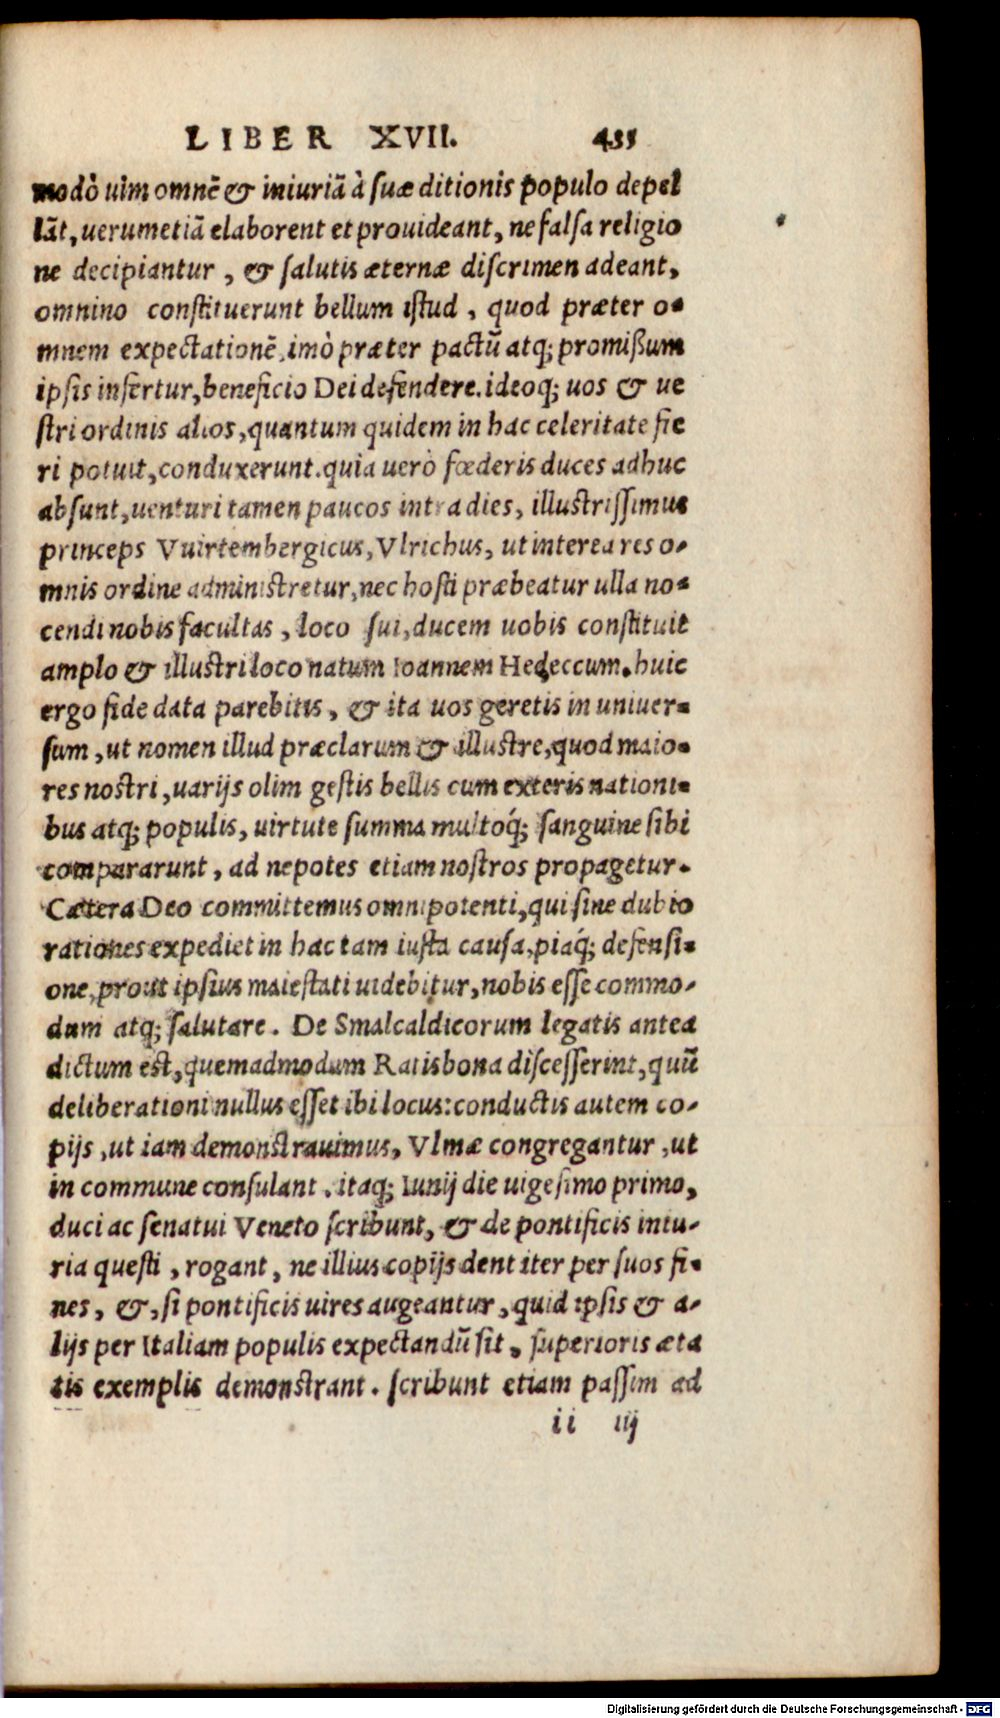 LIBER XVII. 455
modò uim omnē & iniuriā à suæ ditionis populo depel
lāt, uerumetiā elaborent et prouideant, ne falsa religio
ne decipiantur, & salutis æternæ discrimen adeant,
omnino constituerunt bellum istud, quod præter o-
mnem expectationē, imò præter pactū atq; promißum
ipsis infertur, beneficio Dei defendere. ideoq; uos & ue
stri ordinis alios, quantum quidem in hac celeritate fie
ri potuit, conduxerunt. quia uerò fœderis duces adhuc
absunt, uenturi tamen paucos intra dies, illustrissimus
princeps Vuirtembergicus, Vlrichus, ut interea res o-
mnis ordine administretur, nec hosti præbeatur ulla no-
cendi nobis facultas, loco sui, ducem uobis constituit
amplo & illustri loco natum Ioannem Hedeccum. huic
ergo fide data parebitis, & ita uos geretis in uniuer-
sum, ut nomen illud præclarum & illustre, quod maio-
res nostri, uarijs olim gestis bellis cum exteris nationi-
bus atq; populis, uirtute summa multoq́; sanguine sibi
compararunt, ad nepotes etiam nostros propagetur.
Cætera Deo committemus omnipotenti, qui sine dubio
rationes expediet in hac tam iusta causa, piaq́; defensi-
one, prout ipsius maiestati uidebitur, nobis esse commo-
dum atq; salutare. De Smalcaldicorum legatis antea
dictum est, quemadmodum Ratisbona discesserint, quū
deliberationi nullus esset ibi locus: conductis autem co-
pijs, ut iam demonstrauimus, Vlmæ congregantur, ut
in commune consulant. itaq; Iunij die uigesimo primo,
duci ac senatui Veneto scribunt, & de pontificis iniu-
ria questi, rogant, ne illius copijs dent iter per suos fi-
nes, &, si pontificis uires augeantur, quid ipsis & a-
lijs per Italiam populis expectandū sit, superioris æta
tis exemplis demonstrant. scribunt etiam passim ad
ii iij
Digitalisierung gefördert durch die Deutsche Forschungsgemeinschaft - DFG